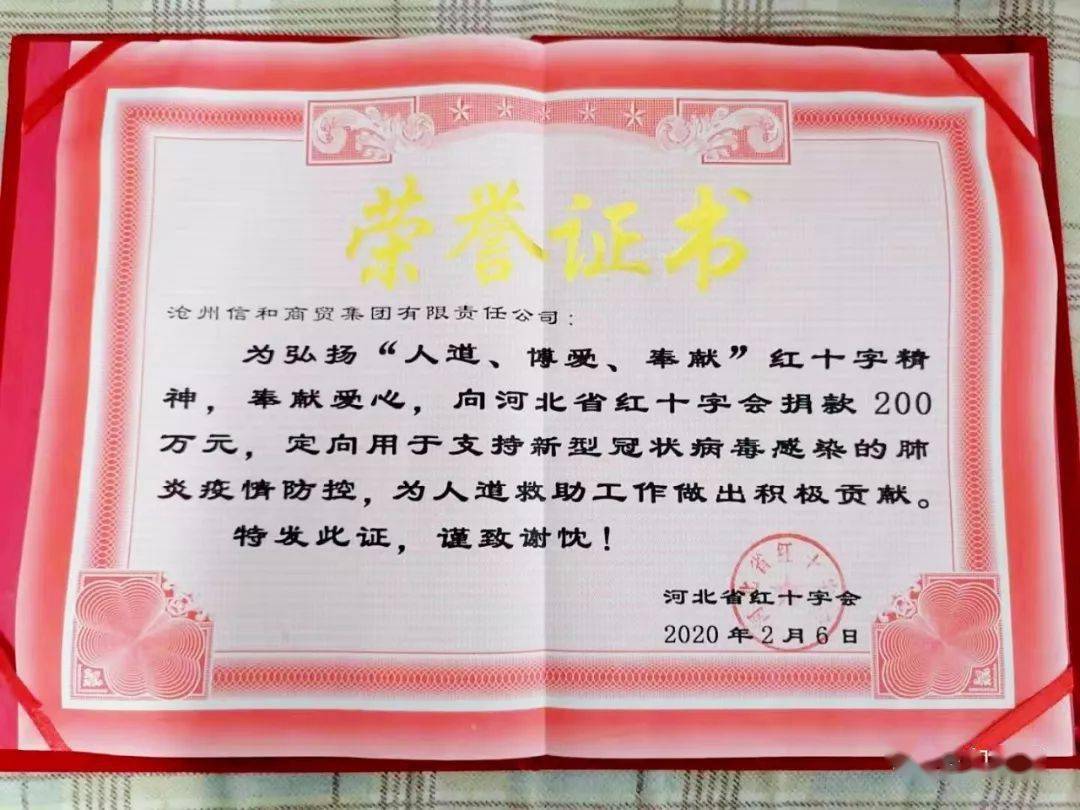 荣誉证书
沧州信和商贸集团有限责任公司：
为弘扬“人道、博爱、奉献”红十字精
神，奉献爱心，向河北省红十字会捐款 200
万元，定向用于支持新型冠状病毒感染的肺
炎疫情防控，为人道救助工作做出积极贡献。
特发此证，谨致谢忱！
河北省红十字会
2020 年 2 月 6 日